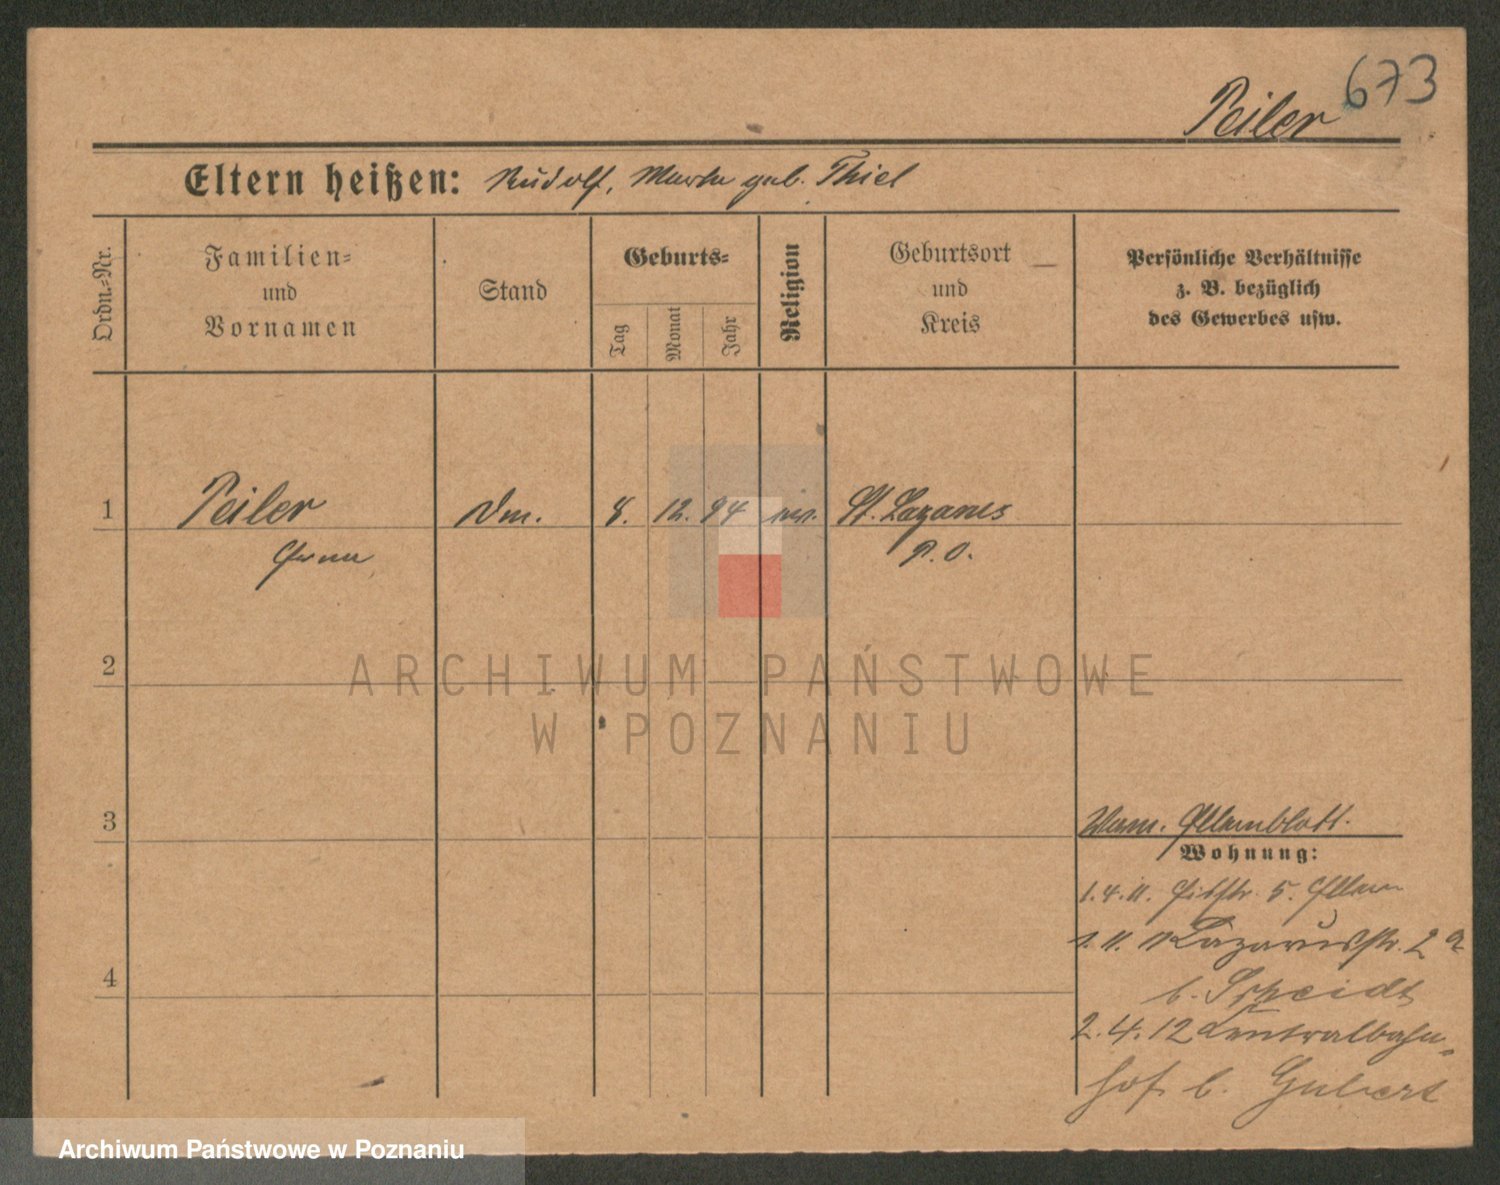 673
Peiler
Eltern heißen: Rudolf, Marta geb. Thiel
Ordn.-Nr.
Familien-
und
Vornamen
Stand
Geburts-
Tag
Monat
Jahr
Religion
Geburtsort
und
Kreis
Persönliche Verhältnisse
z. B. bezüglich
des Gewerbes usw.
1 Peiler Dm. 8. 12. 94 St. Lazarus
Erna P. O.
2
ARCHIWUM PAŃSTWOWE
W POZNANIU
3
Wohnung:
1. 4. 11. 5.
1. 11. 11 Lazarusstr. 2 a
4
b. Scheidt
2. 4. 12 Centralbahn-
hof b. Gubert
Archiwum Państwowe w Poznaniu